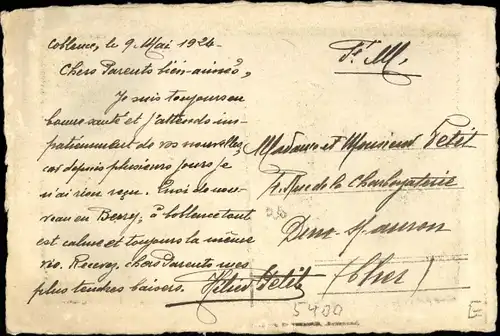 Coblence, le 9 Mai 1924
Chers Parents bien-aimés,
Je suis toujours en
bonne santé et j'attends im-
patiemment de vos nouvelles,
car depuis plusieurs jours je
n'ai rien reçu. Quoi de nou-
veau en Berry, à Coblence tout
est calme et toujours la même
vie. Recevez, chers Parents mes
plus tendres baisers.
Petit
F. M.
Madame et Monsieur Petit
Rue de la
Dun-s-Auron
(Cher)
5400